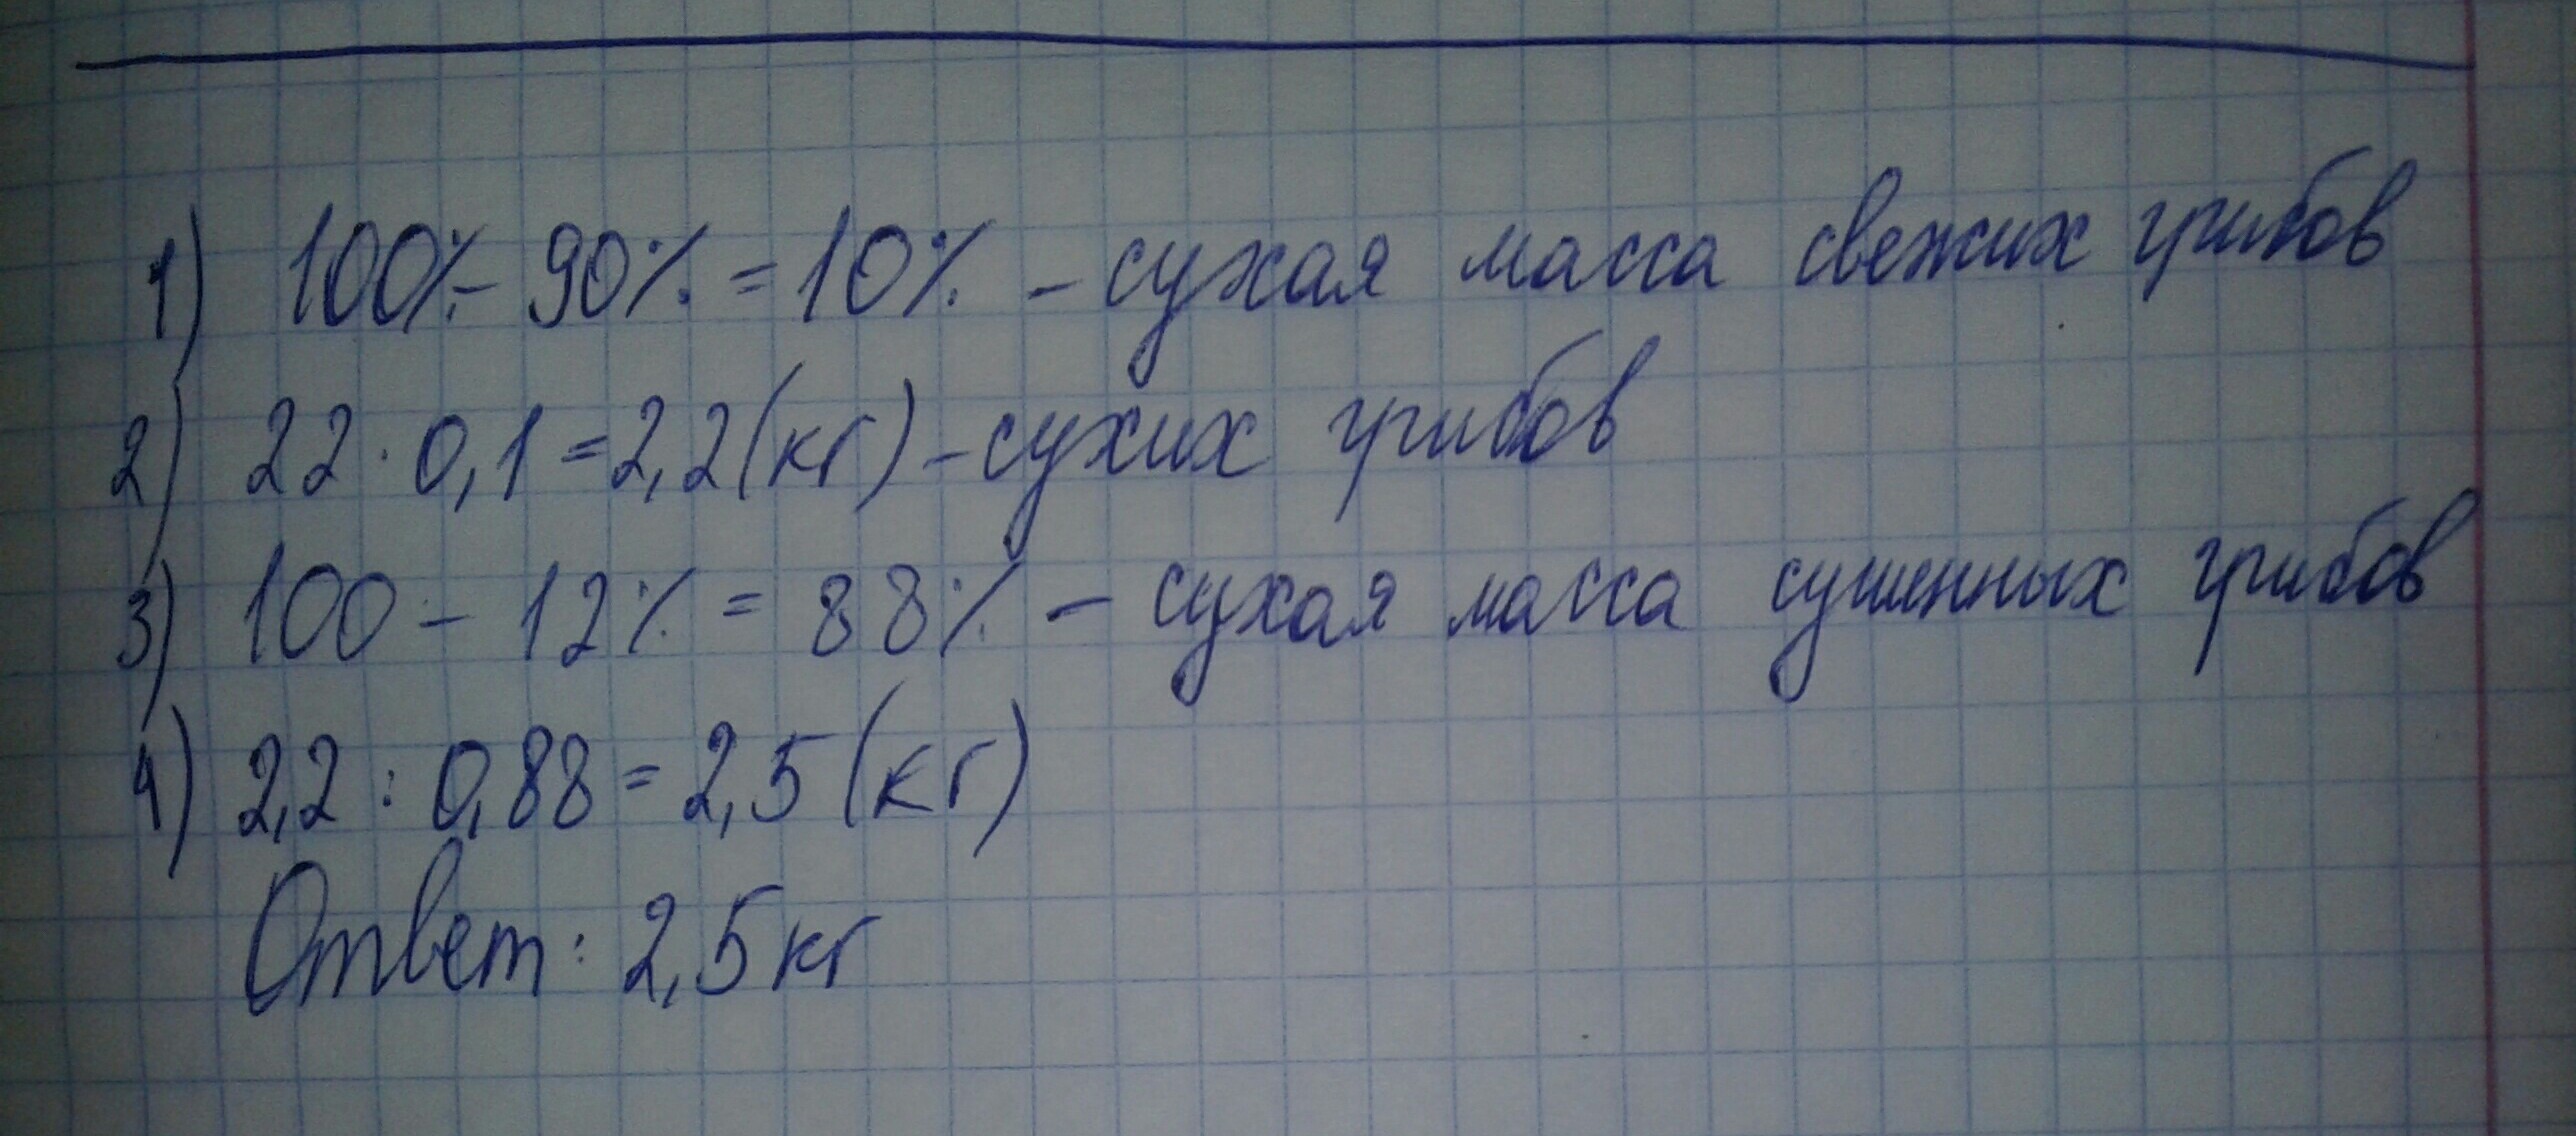 1) 100% - 90% = 10% - сухая масса свежих грибов
2) 22 · 0,1 = 2,2 (кг) - сухих грибов
3) 100 - 12% = 88% - сухая масса сушенных грибов
4) 2,2 : 0,88 = 2,5 (кг)
Ответ: 2,5 кг